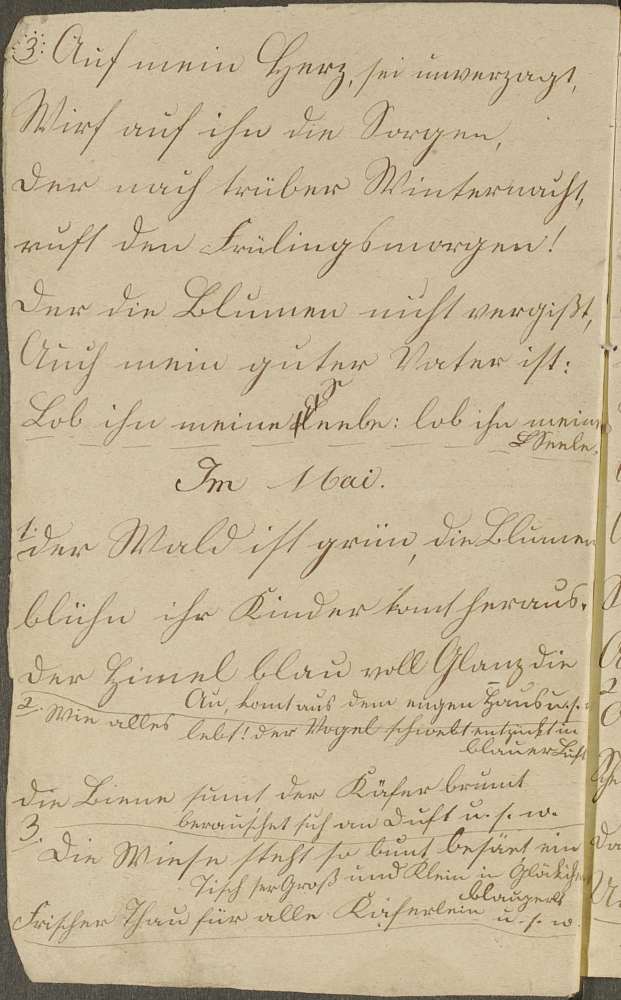 3. Auf mein Herz, sei unverzagt,
Wirf auf ihn die Sorgen,
der nach trüber Winternacht,
ruft den Frülingsmorgen!
Der die Blumen nicht vergißt,
Auch mein guter Vater ist:
Lob ihn meine Seele: lob ihn meine
Seele.
Im Mai.
1. der Wald ist grün, die Blumen
blühn ihr Kinder komt heraus.
Der Himel blau voll Glanz die
Au, komt aus dem engen Haus u. s.
2. Wie alles lebt! der Vogel schwebt entzückt in
blauer Luft
die Biene sumt der Käfer brumt
berauschet sich an Duft u. s. w.
3. Die Wiese steht so bunt besäet ein
Tisch für Groß und Klein in Glöckchen
blauperlt
Frischer Thau für alle Käferlein u. s. w.